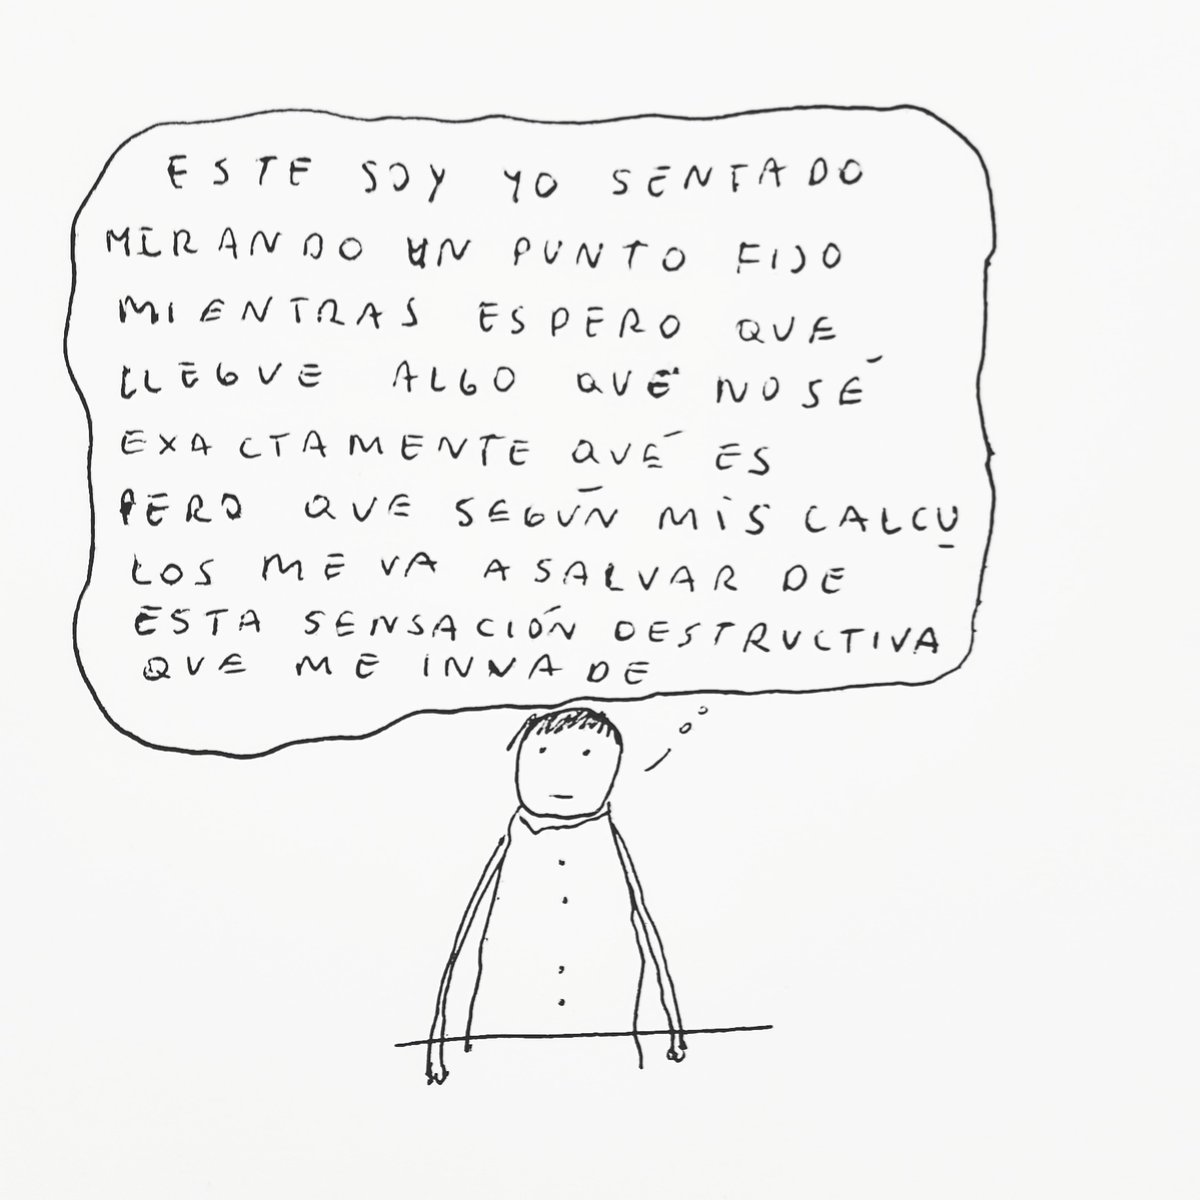 ESTE SOY YO SENTADO
MIRANDO UN PUNTO FIJO
MIENTRAS ESPERO QUE
LLEGUE ALGO QUE NO SÉ
EXACTAMENTE QUÉ ES
PERO QUE SEGÚN MIS CALCU
LOS ME VA A SALVAR DE
ESTA SENSACIÓN DESTRUCTIVA
QUE ME INVADE